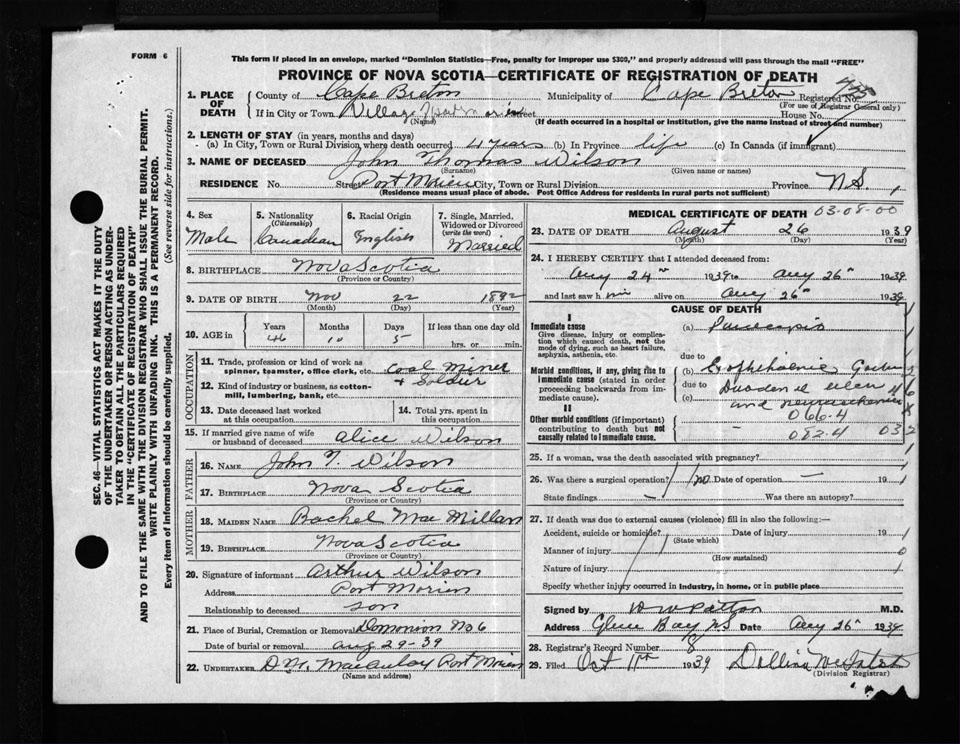 FORM 6
This form if placed in an envelope, marked "Dominion Statistics—Free, penalty for improper use $300," and properly addressed will pass through the mail "FREE"
PROVINCE OF NOVA SCOTIA—CERTIFICATE OF REGISTRATION OF DEATH
SEC. 46—VITAL STATISTICS ACT MAKES IT THE DUTY
OF THE UNDERTAKER OR PERSON ACTING AS UNDER-
TAKER TO OBTAIN ALL THE PARTICULARS REQUIRED
IN THE "CERTIFICATE OF REGISTRATION OF DEATH"
AND TO FILE THE SAME WITH THE DIVISION REGISTRAR WHO SHALL ISSUE THE BURIAL PERMIT.
WRITE PLAINLY WITH UNFADING INK. THIS IS A PERMANENT RECORD.
Every item of information should be carefully supplied. (See reverse side for instructions.)
1. PLACE OF DEATH County of Cape Breton Municipality of Cape Breton Registered No.
(For use of Registrar General only)
If in City or Town Village street House No.
(Name) (If death occurred in a hospital or institution, give the name instead of street and number)
2. LENGTH OF STAY (in years, months and days)
(a) In City, Town or Rural Division where death occurred 4 years (b) In Province life (c) In Canada (if immigrant)
3. NAME OF DECEASED John Thomas Wilson
(Surname) (Given name or names)
RESIDENCE No. Street Port Morien City, Town or Rural Division Province N.S. 1
(Residence means usual place of abode. Post Office Address for residents in rural parts not sufficient)
4. Sex Male
5. Nationality (Citizenship) Canadian
6. Racial Origin English
7. Single, Married, Widowed or Divorced (write the word) Married
8. BIRTHPLACE Nova Scotia
(Province or Country)
9. DATE OF BIRTH Nov 22 1892
(Month) (Day) (Year)
10. AGE in Years Months Days If less than one day old
46 10 5 hrs. or min.
OCCUPATION
11. Trade, profession or kind of work as spinner, teamster, office clerk, etc. Coal Miner
+ Soldier
12. Kind of industry or business, as cotton-mill, lumbering, bank, etc.
13. Date deceased last worked at this occupation
14. Total yrs. spent in this occupation
15. If married give name of wife or husband of deceased Alice Wilson
FATHER
16. NAME John T. Wilson
17. BIRTHPLACE Nova Scotia
(Province or Country)
MOTHER
18. MAIDEN NAME Rachel MacMillan
19. BIRTHPLACE Nova Scotia
(Province or Country)
20. Signature of informant Arthur Wilson
Address Port Morien
Relationship to deceased son
21. Place of Burial, Cremation or Removal Domonion No 6
Date of burial or removal Aug 29-39
22. UNDERTAKER D.M. MacAulay Port Morien
(Name and address)
MEDICAL CERTIFICATE OF DEATH 03-08-00
23. DATE OF DEATH August 26 1939
(Month) (Day) (Year)
24. I HEREBY CERTIFY that I attended deceased from:
Aug 24th 1939 to Aug 26th 1939
and last saw him alive on Aug 26th 1939
CAUSE OF DEATH
I
Immediate cause
Give disease, injury or complication which caused death, not the mode of dying, such as heart failure, asphyxia, asthenia, etc.
(a)
due to
Morbid conditions, if any, giving rise to immediate cause (stated in order proceeding backwards from immediate cause).
(b)
due to
(c) Duodenal ulcer
and
II
Other morbid conditions (if important) contributing to death but not causally related to immediate cause.
066-4
082-4
25. If a woman, was the death associated with pregnancy?
26. Was there a surgical operation? no Date of operation — 19
State findings — Was there an autopsy?
27. If death was due to external causes (violence) fill in also the following:—
Accident, suicide or homicide? Date of injury 19
(State which)
Manner of injury
(How sustained)
Nature of injury
Specify whether injury occurred in industry, in home, or in public place
Signed by M.D.
Address Glace Bay NS Date Aug 26th 1939
28. Registrar's Record Number 8
29. Filed Oct 11th 1939
(Division Registrar)